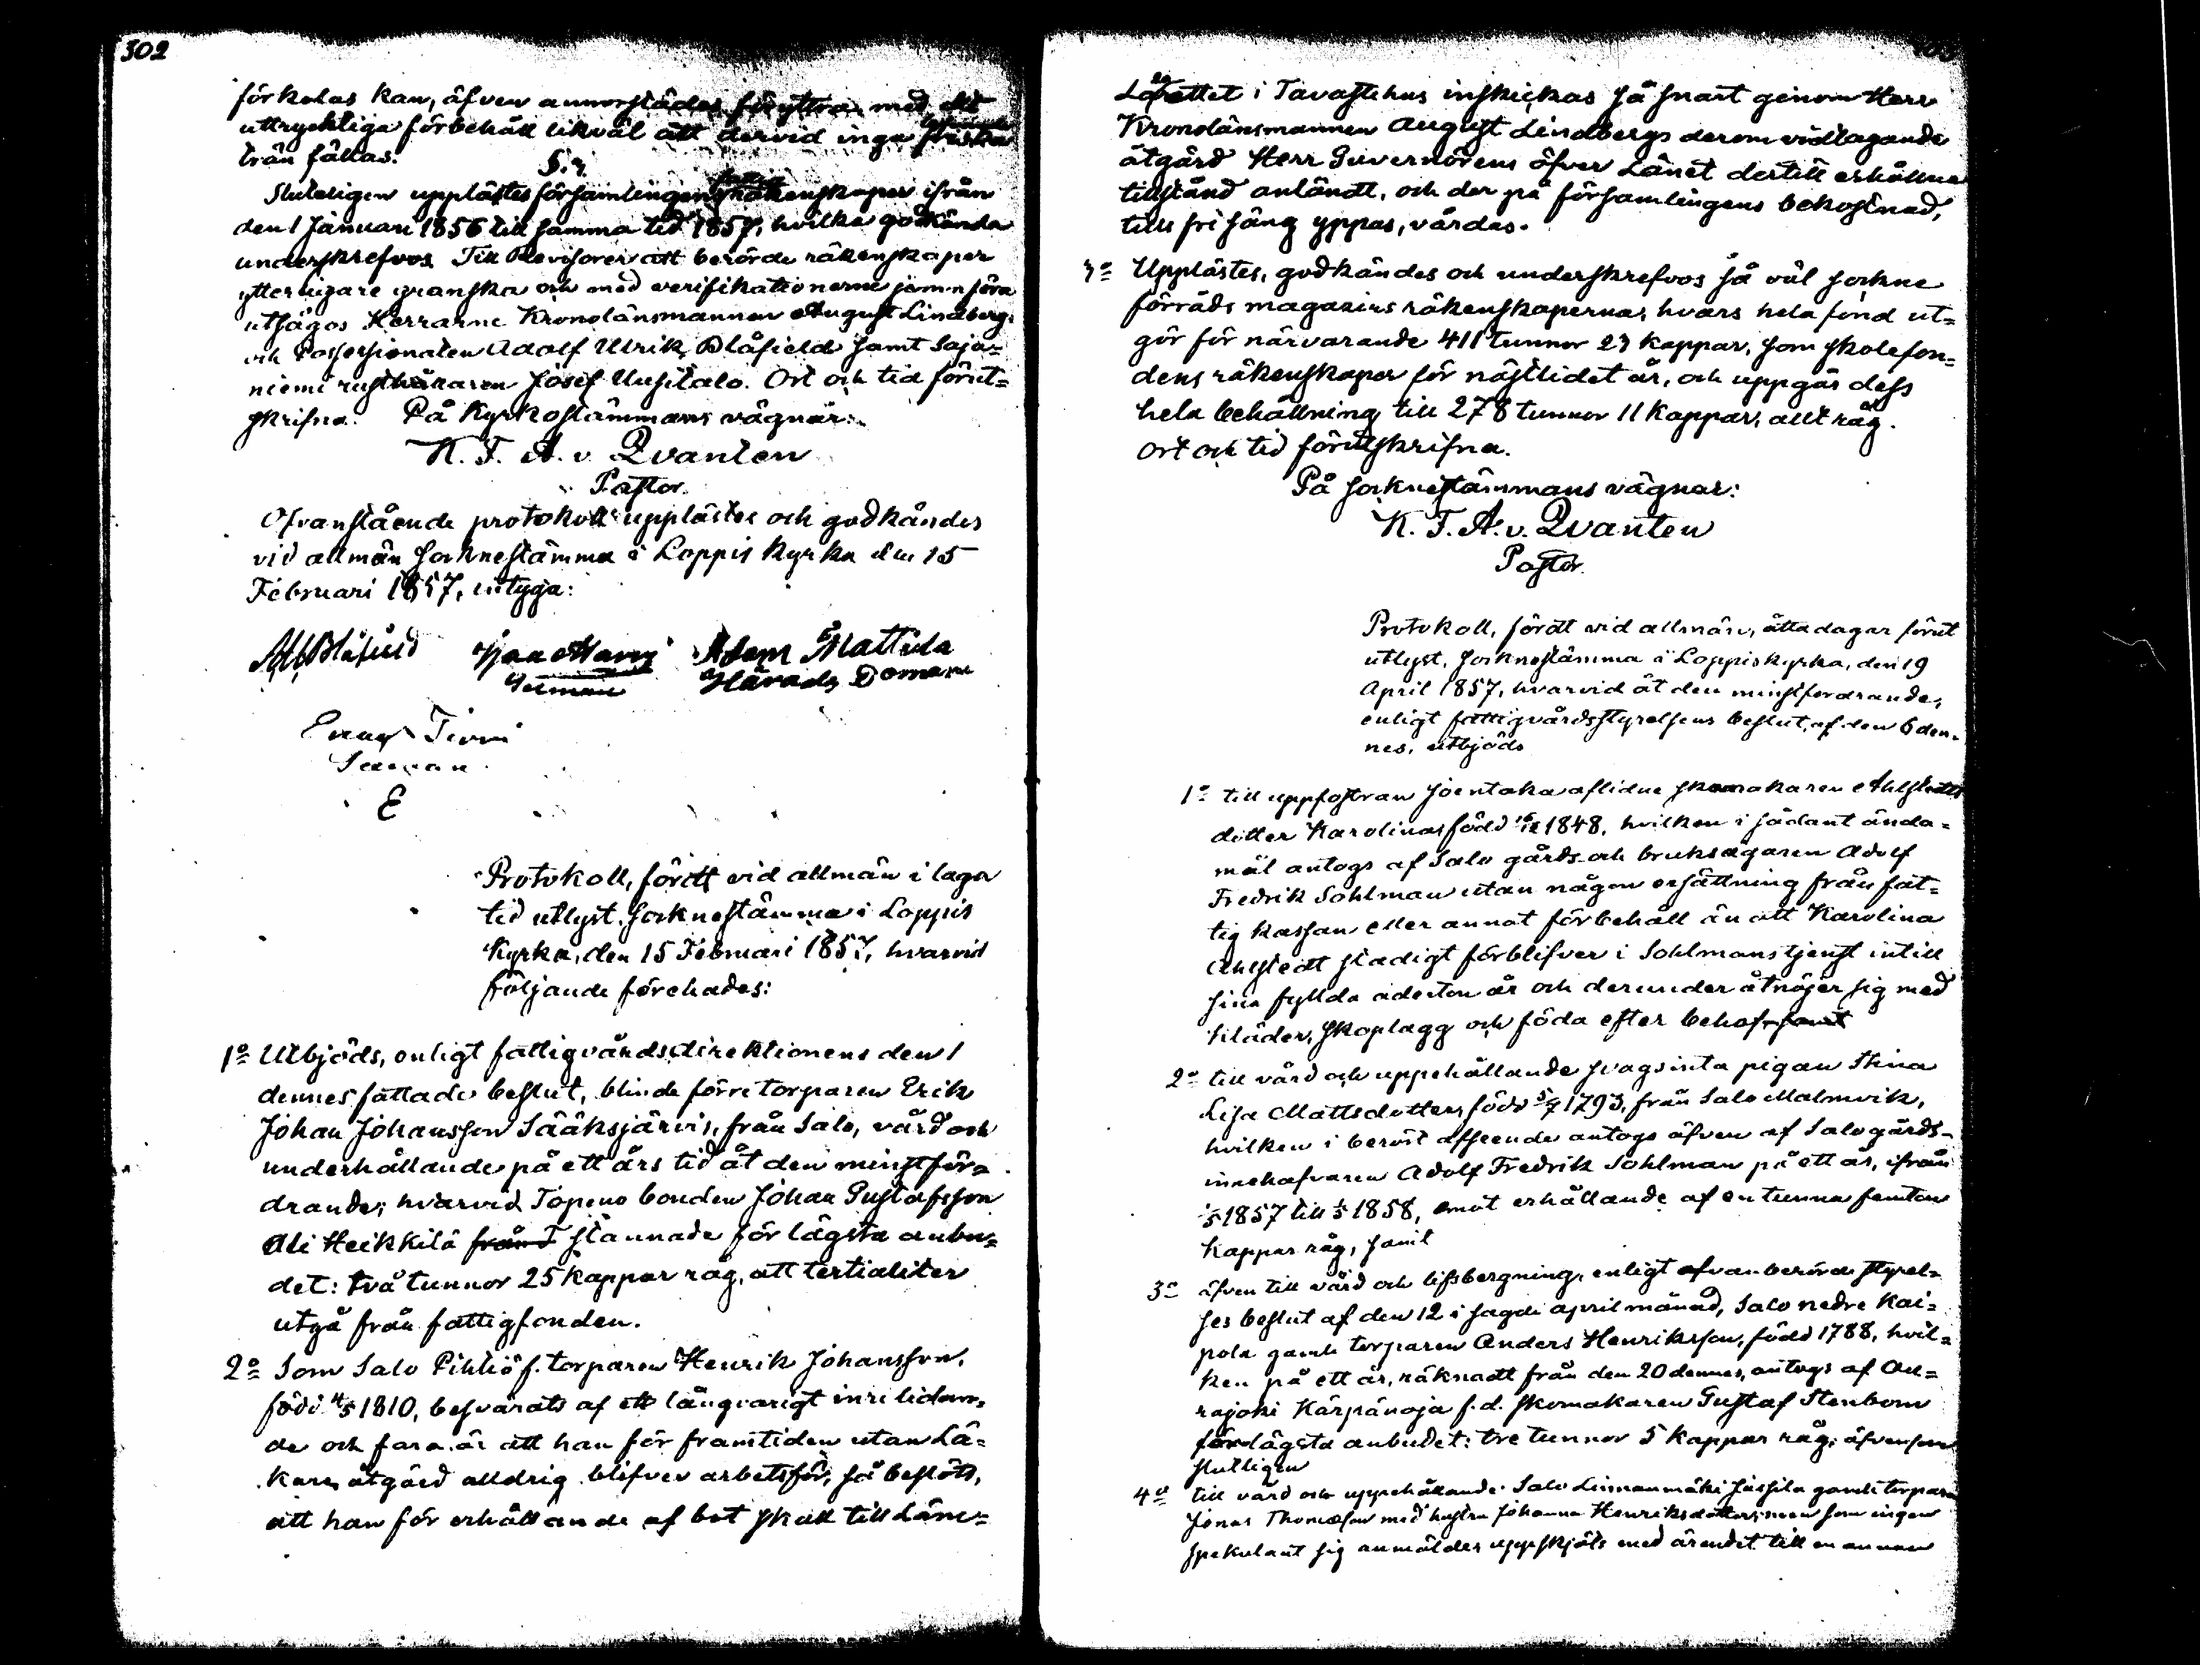 302
förkolas kan, äfven annorstädes föryttra med det
uttryckliga förbehåll likväl att dervid inga friska
trän fällas.
§.7.
Sluteligen upplästes församlingens räkenskaper ifrån
den 1 Januari 1856 till samma tid 1857, hvilka godkända
underskrefvos. Till Revisorer att berörde räkenskaper
ytterligare granska och med verifikationerne jämnföra
utsågos Herrarne Kronolänsmannen August Lindberg
och Possessionaten Adolf Ulrik Blåfield samt Saja=
niemi rusthållaren Josef Uusitalo. Ort och tid förut=
skrifna. På Kyrkostämmans vägnar:
K. F. A. v. Qvanten
Pastor.
Ofvanstående protokoll upplästes och godkändes
vid allmän socknestämma i Loppis Kyrka den 15
Februari 1857, intyga:
Adolf Blåfield Adam Mattila
Härads Domare
Tirri
E
Protokoll, fördt vid allmän i laga
tid utlyst socknestämma i Loppis
Kyrka, den 15 Februari 1857, hvarvid
följande förehades:
1o Utbjöds, enligt fattigvårdsdirektionens den 1
dennes fattade beslut, blinde förre torparen Erik
Johan Johansson Sääksjärvis, från Salo, vård och
underhållande på ett års tid åt den minstfor=
drande; hvarvid Topeno bonden Johan Gustafsson
Ali Heikkilä från T stannade för lägsta anbu=
det: två tunnor 25 kappar råg, att tertialiter
utgå från fattigfonden.
2o Som Salo Pihtiö f. torparen Henrik Johansson,
född 4/5 1810, besvärats af ett långvarigt inre lidan=
de och fara är att han för framtiden utan Lä=
kares åtgärd alldrig blifver arbetsför, så beslöts,
att han för erhållande af bot skall till Läns=
Lasarettet i Tavastehus inskickas så snart genom Herr
Kronolänsmannen August Lindbergs derom vidtagande
åtgärd Herr Guvernörens öfver Länet dertill erhållne
tillstånd anländt, och der på församlingens bekostnad,
tills fri säng yppas, vårdas.
3o Upplästes, godkändes och underskrefvos så väl sockne
förråds magasins räkenskaperna, hvars hela fond ut=
gör för närvarande 411 tunnor 29 kappar, som skolefon=
dens räkenskaper för nästlidet år, och uppgår dess
hela behållning till 278 tunnor 11 kappar, allt råg.
Ort och tid förutskrifna.
På socknestämmans vägnar:
K. F. A. v. Qvanten
Pastor.
Protokoll, fördt vid allmän, åtta dagar förut
utlyst, socknestämma i Loppis kyrka, den 19
April 1857, hvarvid åt den minstfordrande,
enligt fattigvårdsstyrelsens beslut af den 6 den=
nes, utbjöds
1o till uppfostran Joentaka aflidne skomakaren Ahlstedts
dotter Karolina, född 1848, hvilken i sådant ända=
mål antogs af Salo gårds och bruksägaren Adolf
Fredrik Sohlman utan någon ersättning från fat=
tig kassan eller annat förbehåll än att Karolina
Ahlstedt stadigt förblifver i Sohlmans tjenst intill
sina fyllda aderton år och derunder åtnöjer sig med
kläder, skoplagg och föda efter behof samt
2o till vård och uppehållande svagsinta pigan Stina
Lisa Mattsdotter, född 5/7 1793, från Salo Malmvik,
hvilken i berört afseende antogs äfven af Salo gårds=
innehafvaren Adolf Fredrik Sohlman på ett år, ifrån
1/5 1857 till 1/5 1858, emot erhållande af en tunna femton
kappar råg, samt
3o äfven till vård och lifsbergning, enligt ofvanberörde styrel=
ses beslut af den 12 i sagde april månad, Salo nedre Kai=
pola gamle torparen Anders Henriksson, född 1788, hvil=
ken på ett år, räknadt från den 20 dennes, antogs af Au=
rajoki Kärpänoja f.d. skomakaren Gustaf Stenbom
för lägsta anbudet: tre tunnor 5 kappar råg; äfvensom
slutligen
4o till vård och uppehållande Salo Linnanmäki Jussila gamle torparen
Jonas Thomasson med hustru Johanna Henriksdotter; men som ingen
spekulant sig anmälde, uppskjöts med ärendet till en annan